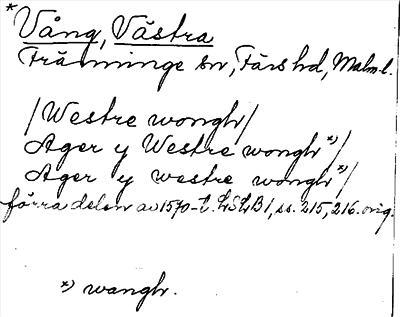 * Vång, Västra
Träminge sn, Färs hd, Malm. l.
/Westre wongh/
Ager y Westre wongh *)/
Ager y westre wongh *)/
förra delen av 1570-t. LSLB 1, ss. 215, 216. orig.
*) wangh.